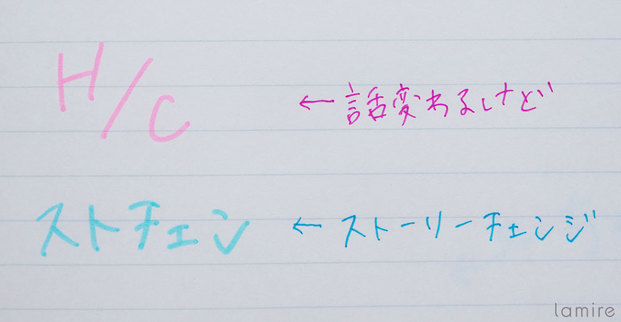 H/C ←話変わるけど
ストチェン ←ストーリーチェンジ
lamire